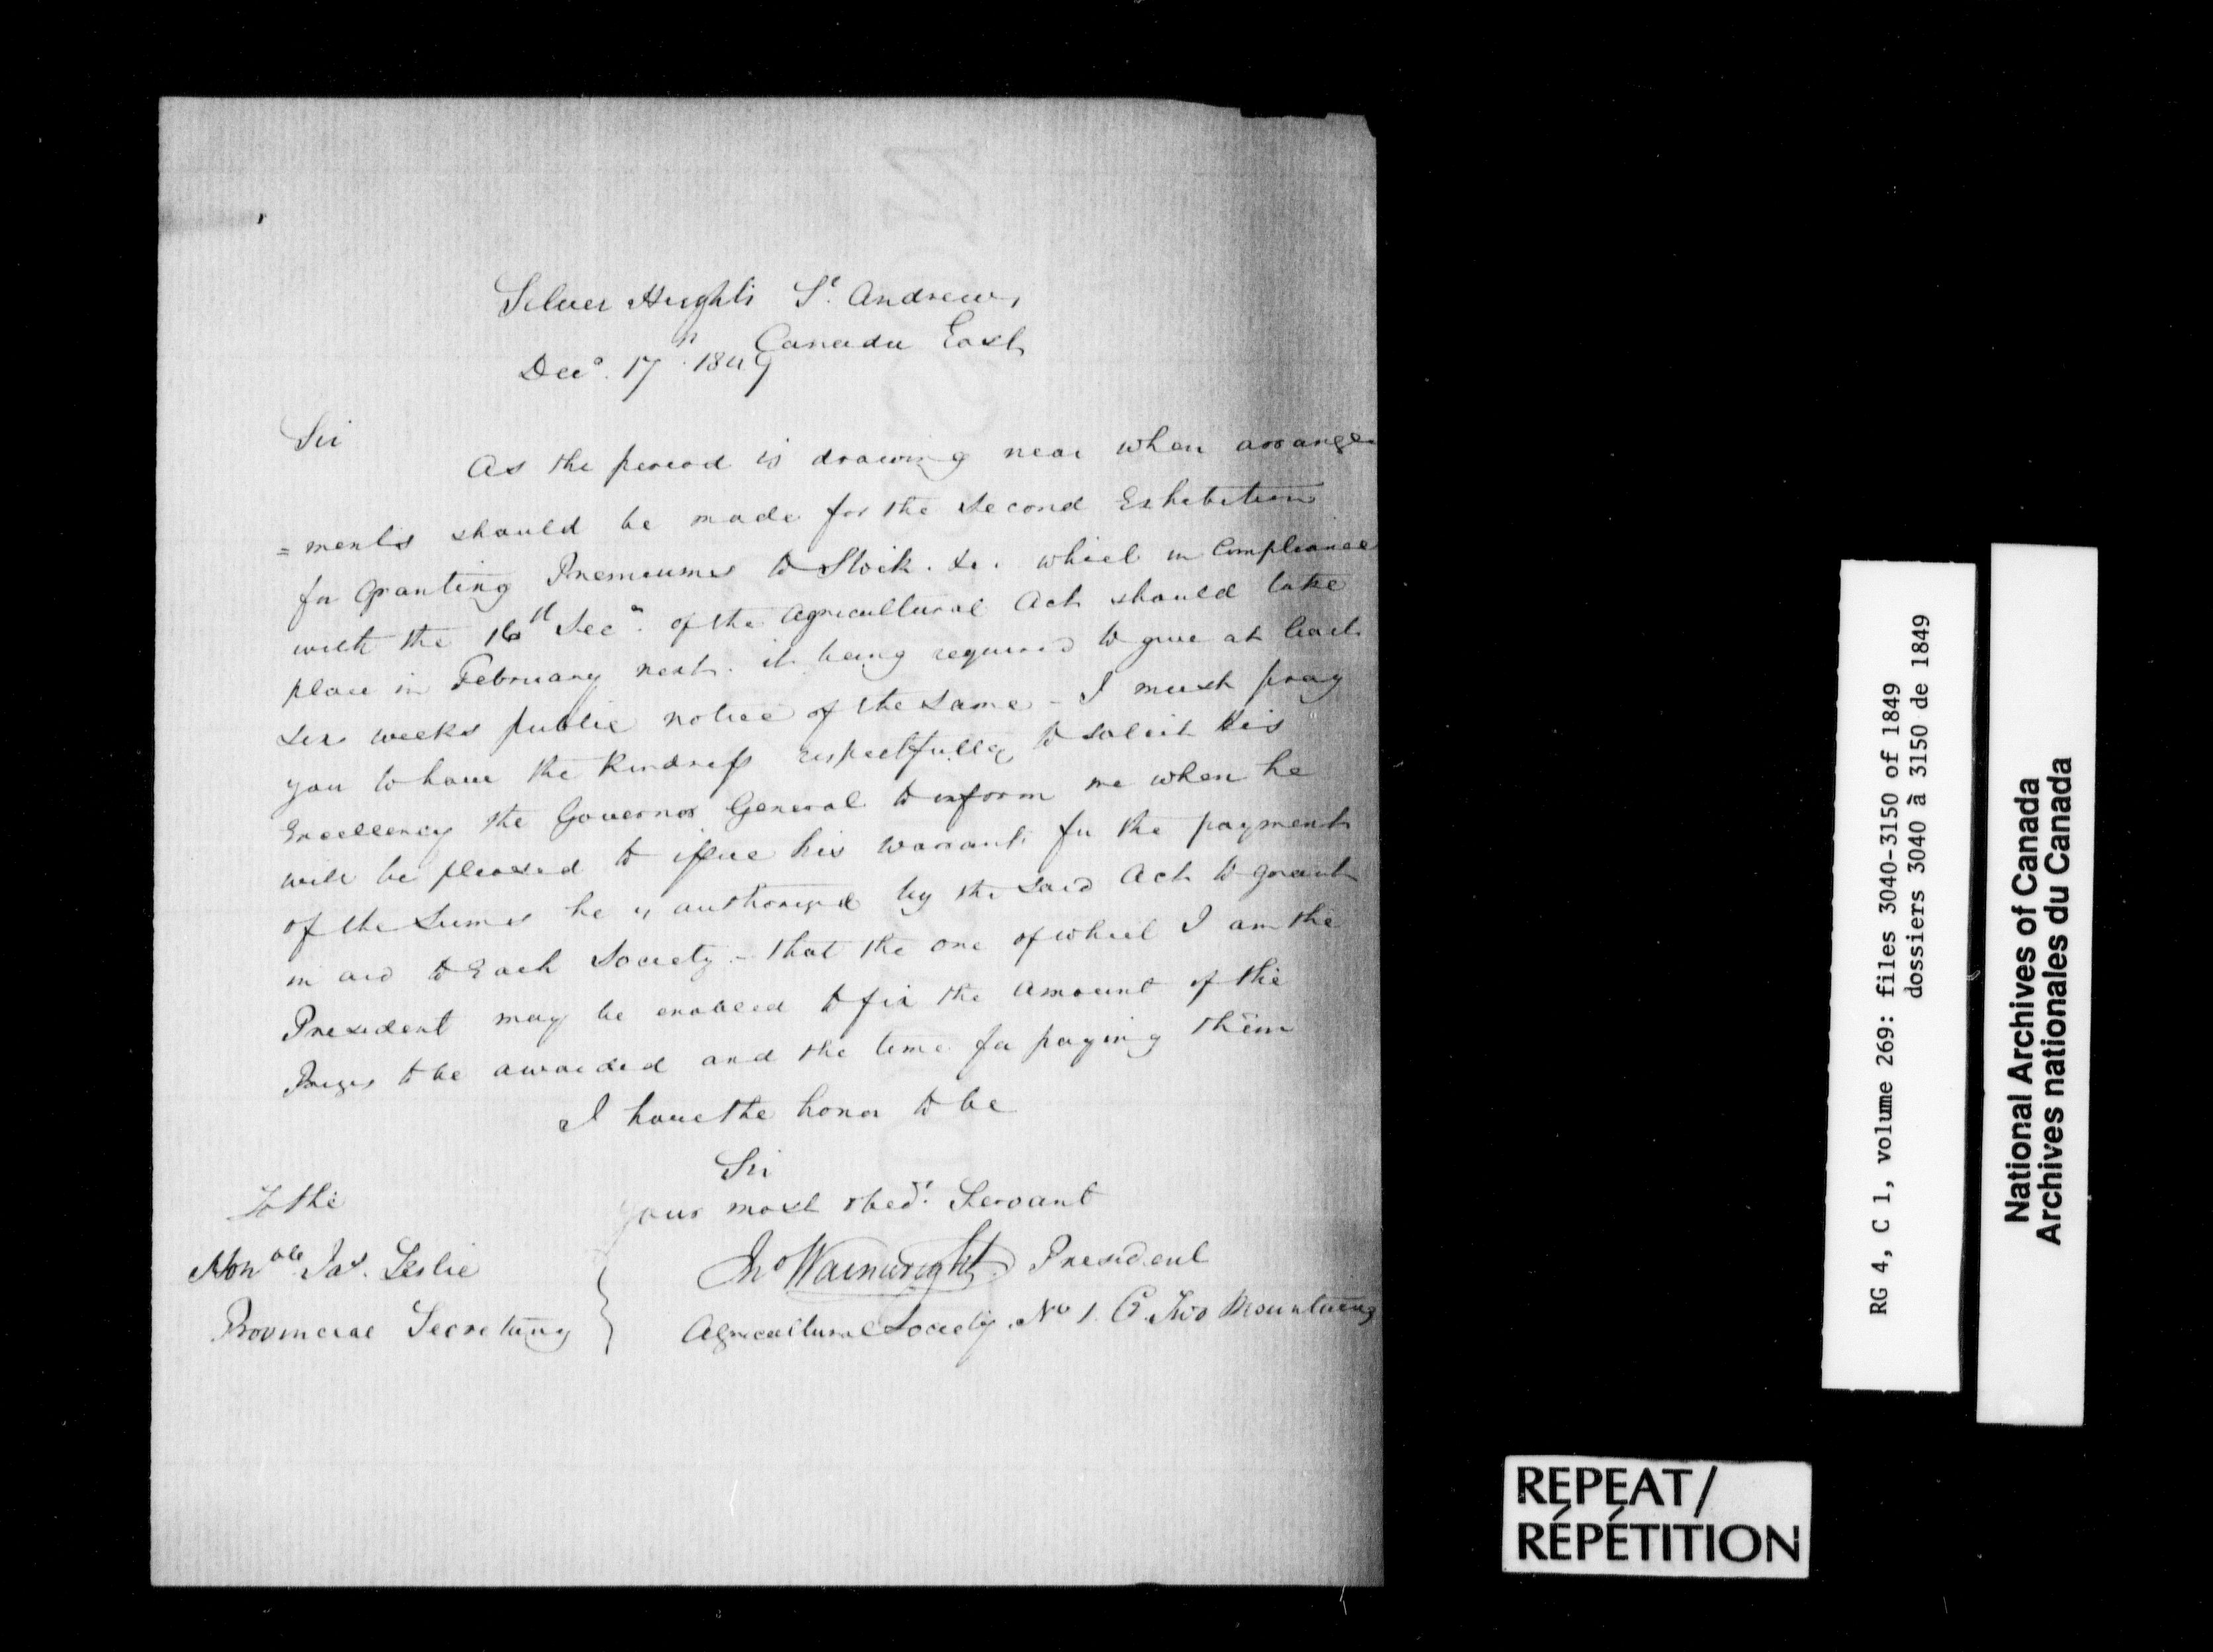 Silver Heights St. Andrews
Canada East
Decr. 17th 1849
Sir
As the period is drawing near when arrange
=ments should be made for the Second Exhibition
for Granting Premiums to Stock. &c. which in Compliance
with the 16th Secn. of the Agricultural Act should take
place in February next. it being required to give at least
six weeks public notice of the same - I must pray
you to have the kindness respectfully to solicit His
Excellency the Governor General to inform me when he
will be pleased to issue his warrant for the payment
of the sums he is authorized by the said Act to grant
in aid to Each Society - that the one of which I am the
President may be enabled to fix the amount of the
Prizes to be awarded and the time for paying them
I have the honor to be
Sir
your most obedt. Servant
Jno Wainwright President
Agricultural Society No 1. Co. Two Mountains
To the
Honble Jas. Leslie
Provincial Secretary
RG 4, C 1, volume 269: files 3040-3150 of 1849
dossiers 3040 à 3150 de 1849
National Archives of Canada
Archives nationales du Canada
REPEAT/
RÉPÉTITION